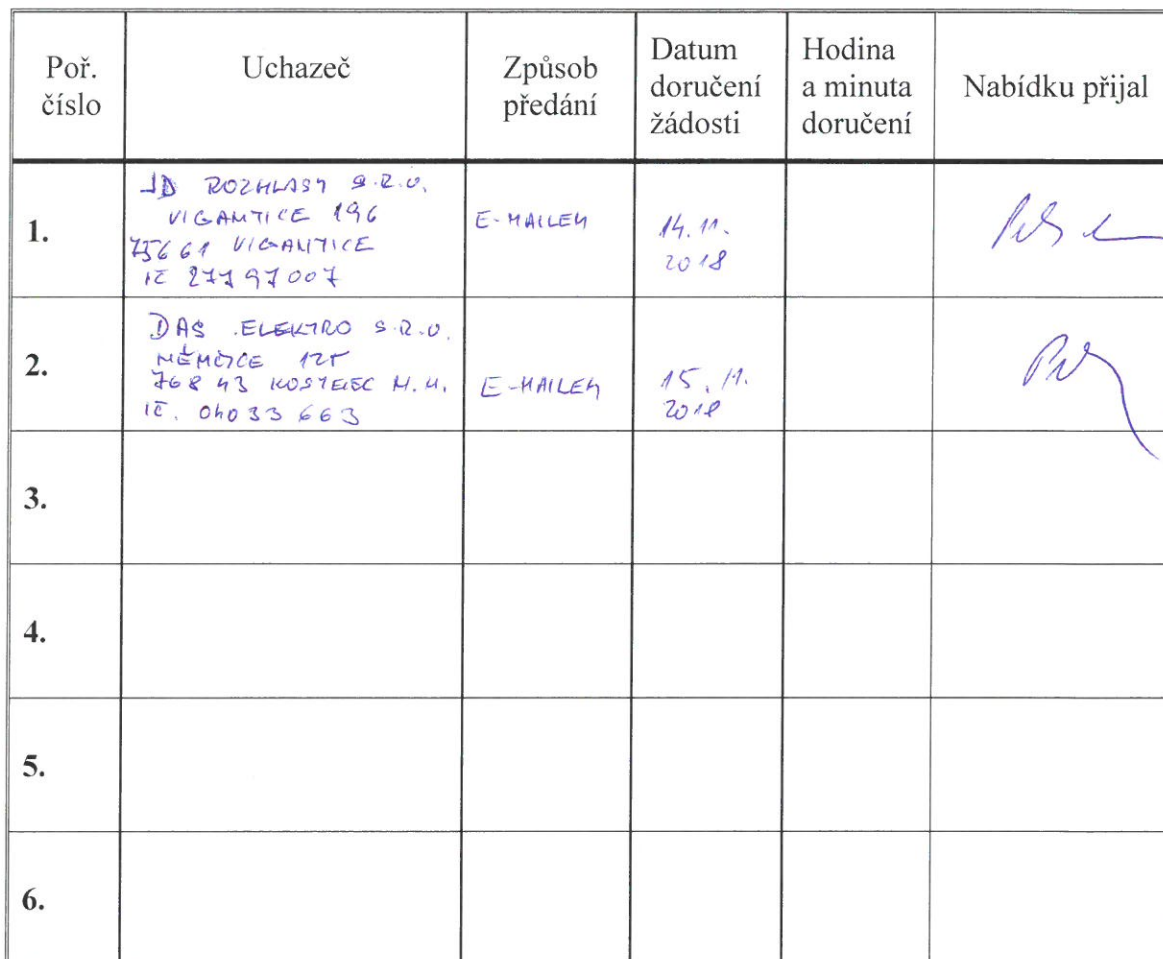 Poř. číslo
Uchazeč
Způsob předání
Datum doručení žádosti
Hodina a minuta doručení
Nabídku přijal
1.
JD ROZHLASY S.R.O.
VIGANTICE 196
75661 VIGANTICE
IČ 27797007
E-MAILEM
14.11.
2018
2.
DAS ELEKTRO S.R.O.
NĚMČICE 125
768 43 KOSTELEC N.H.
IČ. 04033663
E-MAILEM
15.11.
2018
3.
4.
5.
6.